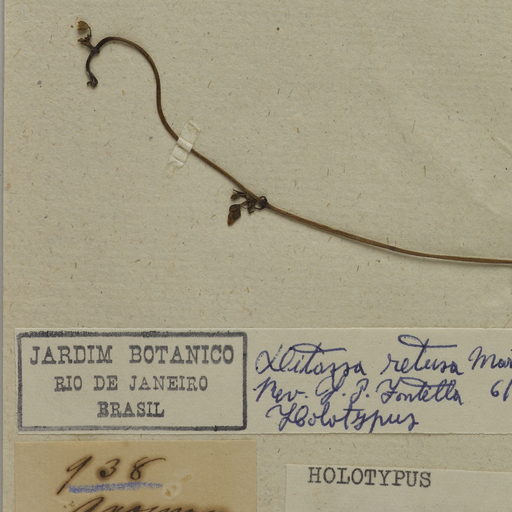 JARDIM BOTANICO
RIO DE JANEIRO
BRASIL
Ditassa retusa Mar
Rev. J. P. Fontella 6/
Holotypus
938
HOLOTYPUS